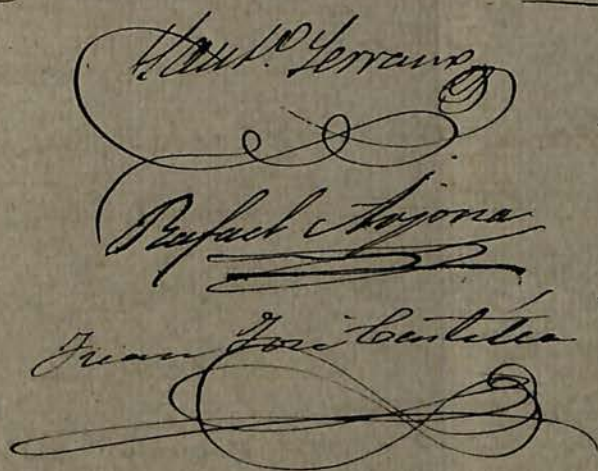 Serrano
Rafael Arjona
Juan José Castilla